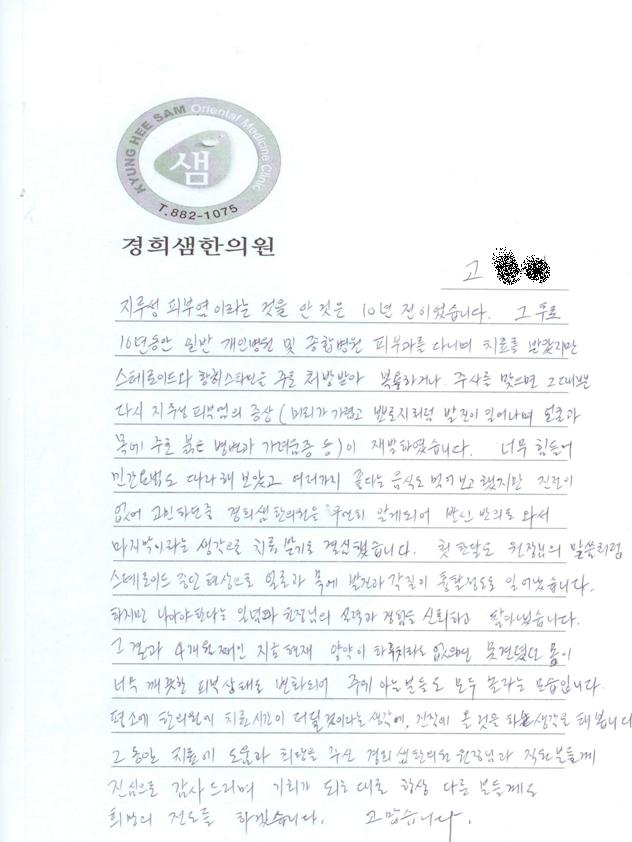 KYUNG HEE SAM Oriental Medicine Clinic
샘
T.882-1075
경희샘한의원
고
지루성 피부염이라는 것을 안 것은 10년 전이었습니다. 그 후로
10년동안 일반 개인병원 및 종합병원 피부과를 다니며 치료를 받았지만
스테로이드와 항히스타민을 주로 처방받아 복용하거나 주사를 맞으면 그때뿐
다시 지루성 피부염의 증상(머리가 가렵고 뾰로지처럼 발진이 일어나며 얼굴과
목에 주로 붉은 병변과 가려움증 등)이 재발하였습니다. 너무 힘들어
민간요법도 따라해 보았고 여러가지 좋다는 음식도 먹어보고 했지만 진전이
없어 고민하던중 경희샘한의원을 우연히 알게되어 반신반의로 와서
마지막이라는 생각으로 치료받기로 결심했습니다. 첫 한달도 원장님의 말씀처럼
스테로이드 중단 현상으로 얼굴과 목에 발진과 각질이 통탈정도로 일어났습니다.
하지만 나아야한다는 일념과 원장님의 실력과 경험을 신뢰하고 참아냈습니다.
그 결과 4개월째인 지금 현재 양약이 하루치라도 없으면 못견뎠던 몸이
너무 깨끗한 피부상태로 변화되어 주위 아는분들도 모두 놀라는 모습입니다.
평소에 한의원에 치료시간이 더딜것이라는 생각에, 진작에 올 것을 하는 생각을 해 봅니다
그 동안 치료에 도움과 희망을 주신 경희샘한의원 원장님과 직원분들께
진심으로 감사드리며 기회가 되는 대로 항상 다른 분들께도
희망의 전도를 하겠습니다. 고맙습니다.